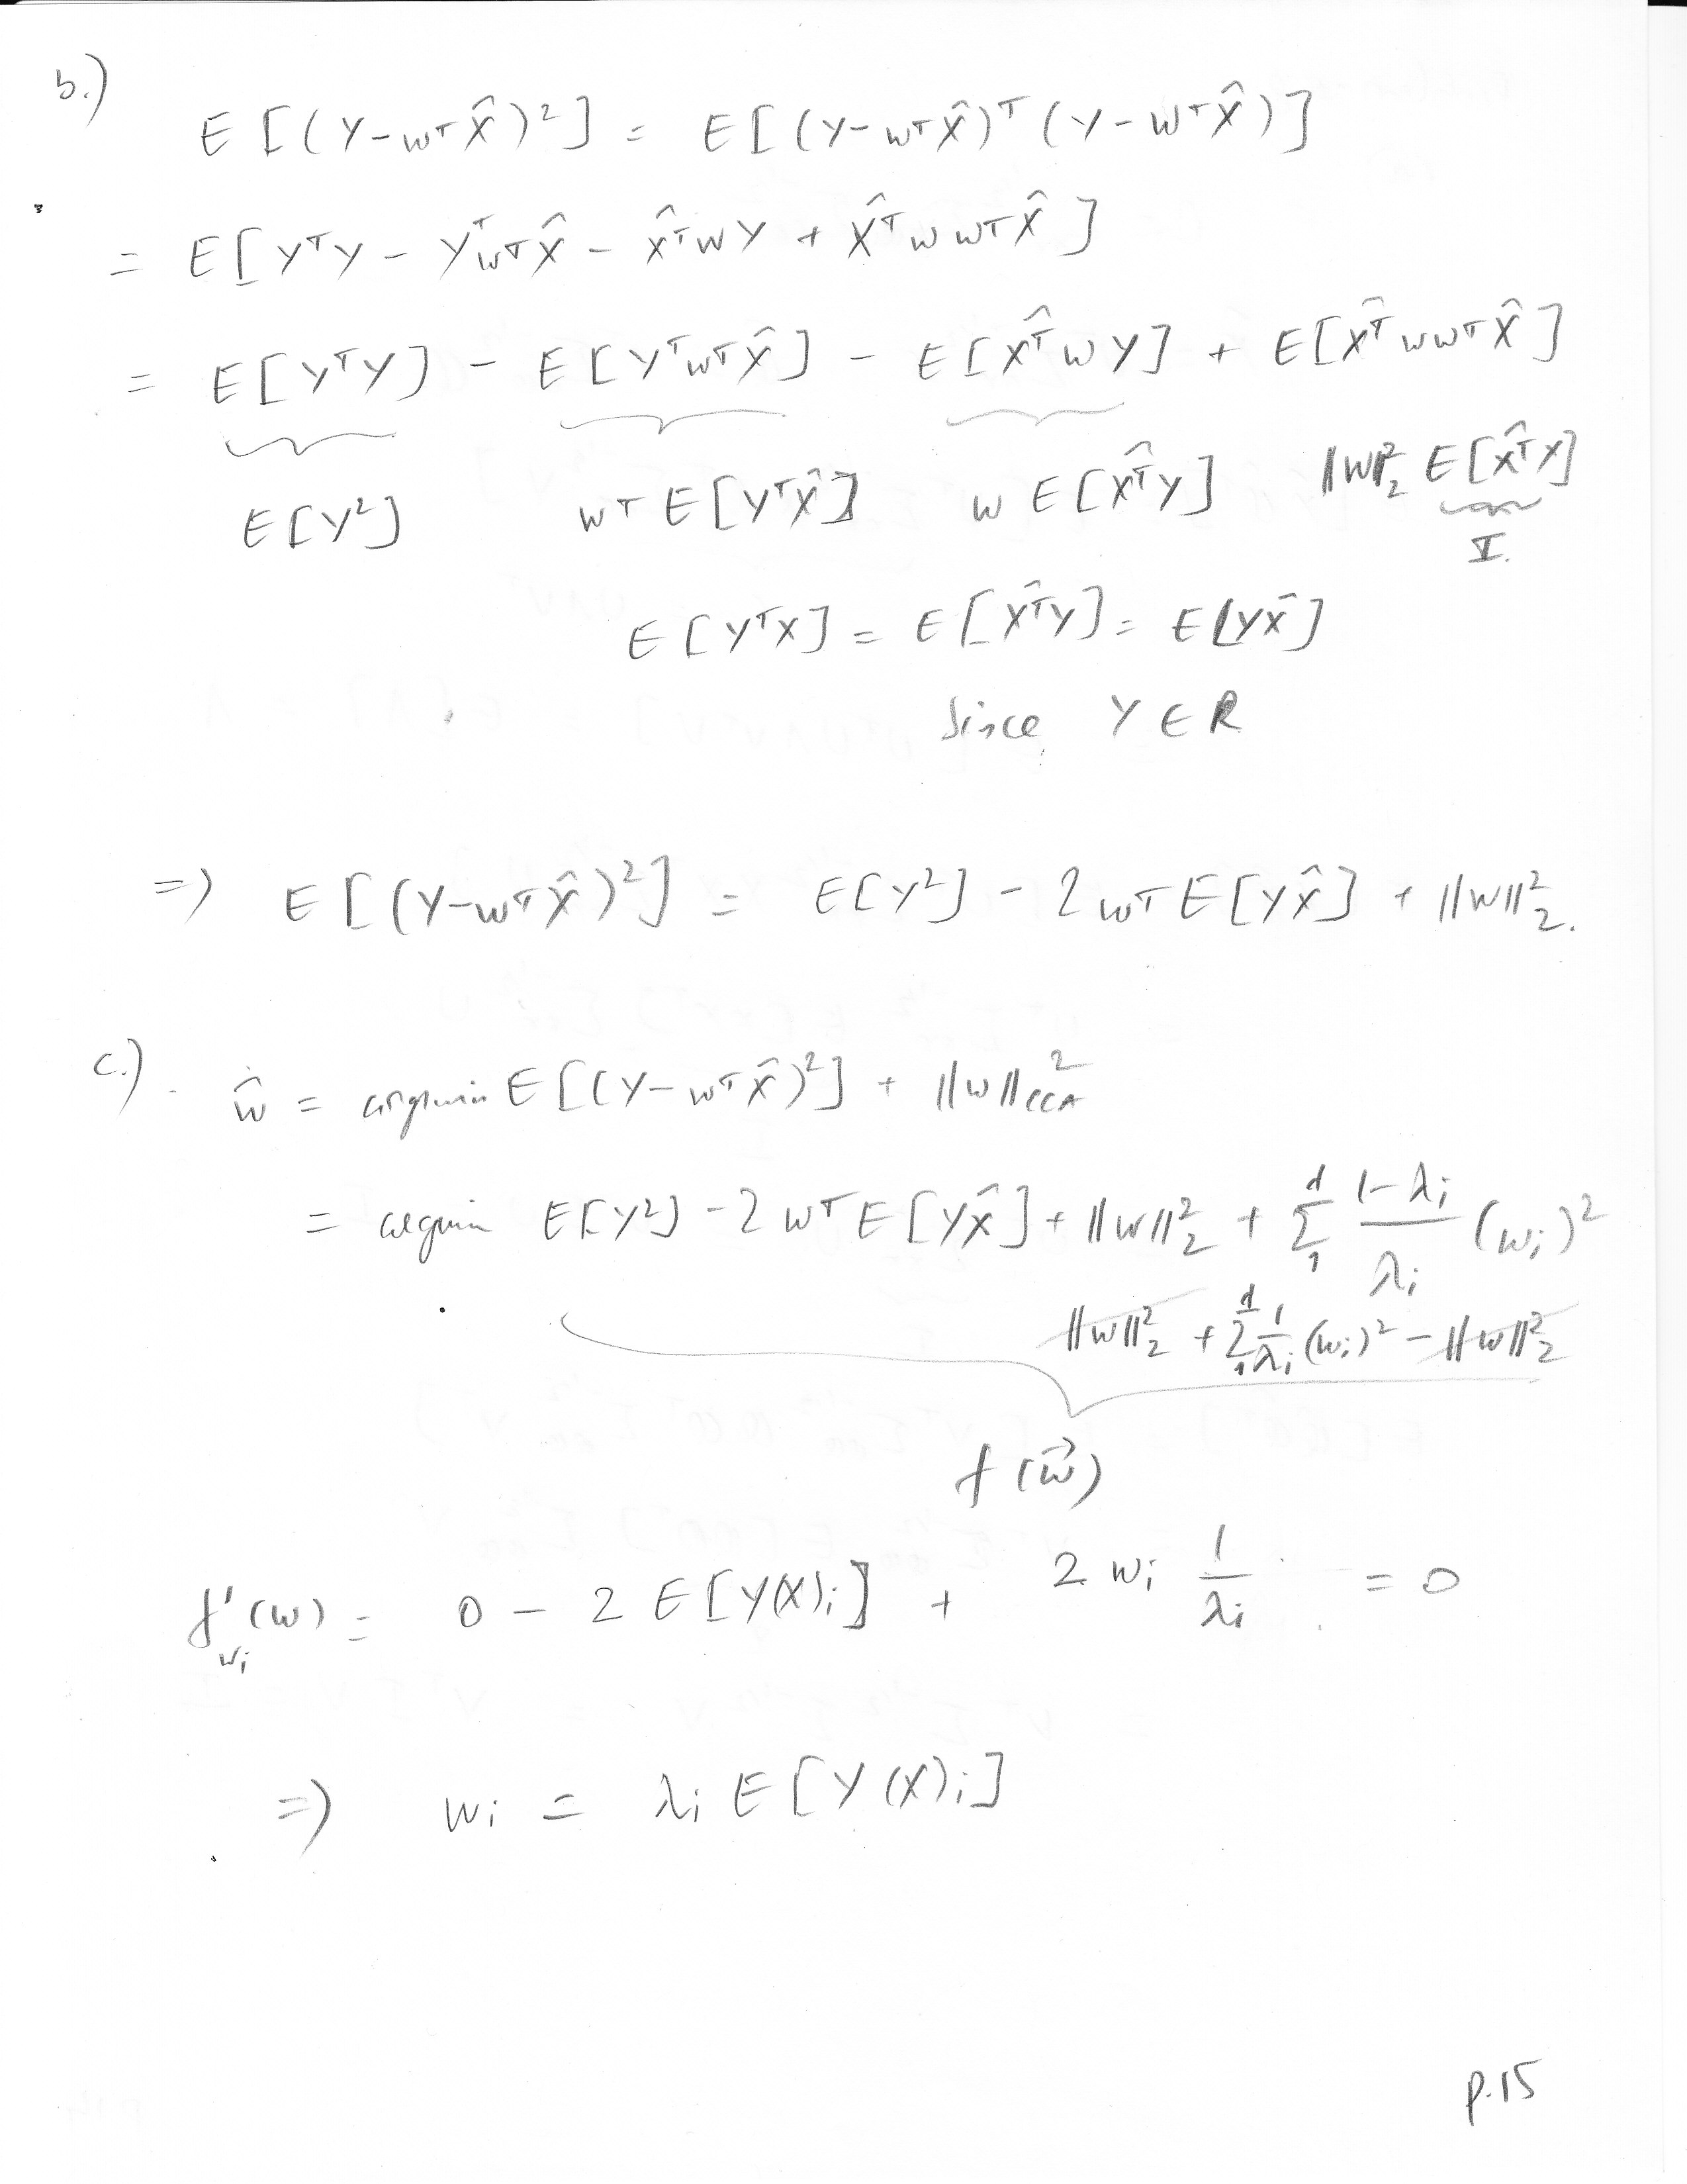 b.)
E [(Y-wᵀX̂)²] = E[(Y-wᵀX̂)ᵀ(Y-wᵀX̂)]
= E[YᵀY - YᵀwᵀX̂ - X̂ᵀwY + X̂ᵀwwᵀX̂]
= E[YᵀY] - E[YᵀwᵀX̂] - E[X̂ᵀwY] + E[X̂ᵀwwᵀX̂]
E[Y²] wᵀE[YᵀX̂] w E[X̂ᵀY] ||w||₂² E[X̂ᵀX]
I.
E[YᵀX] = E[X̂ᵀY] = E[YX̂]
Since Y ∈ R
=> E[(Y-wᵀX̂)²] = E[Y²] - 2wᵀE[YX̂] + ||w||₂².
c.) ŵ = argmin E[(Y-wᵀX̂)²] + ||w||²CCA
= argmin E[Y²] - 2wᵀE[YX̂] + ||w||₂² + Σ₁ᵈ (1-λᵢ)/λᵢ (wᵢ)²
||w||₂² + Σ₁ᵈ 1/λᵢ (wᵢ)² - ||w||₂²
f(w⃗)
f'wᵢ(w) = 0 - 2 E[Y(X)ᵢ] + 2 wᵢ 1/λᵢ = 0
=> wᵢ = λᵢ E[Y(X)ᵢ]
p.15